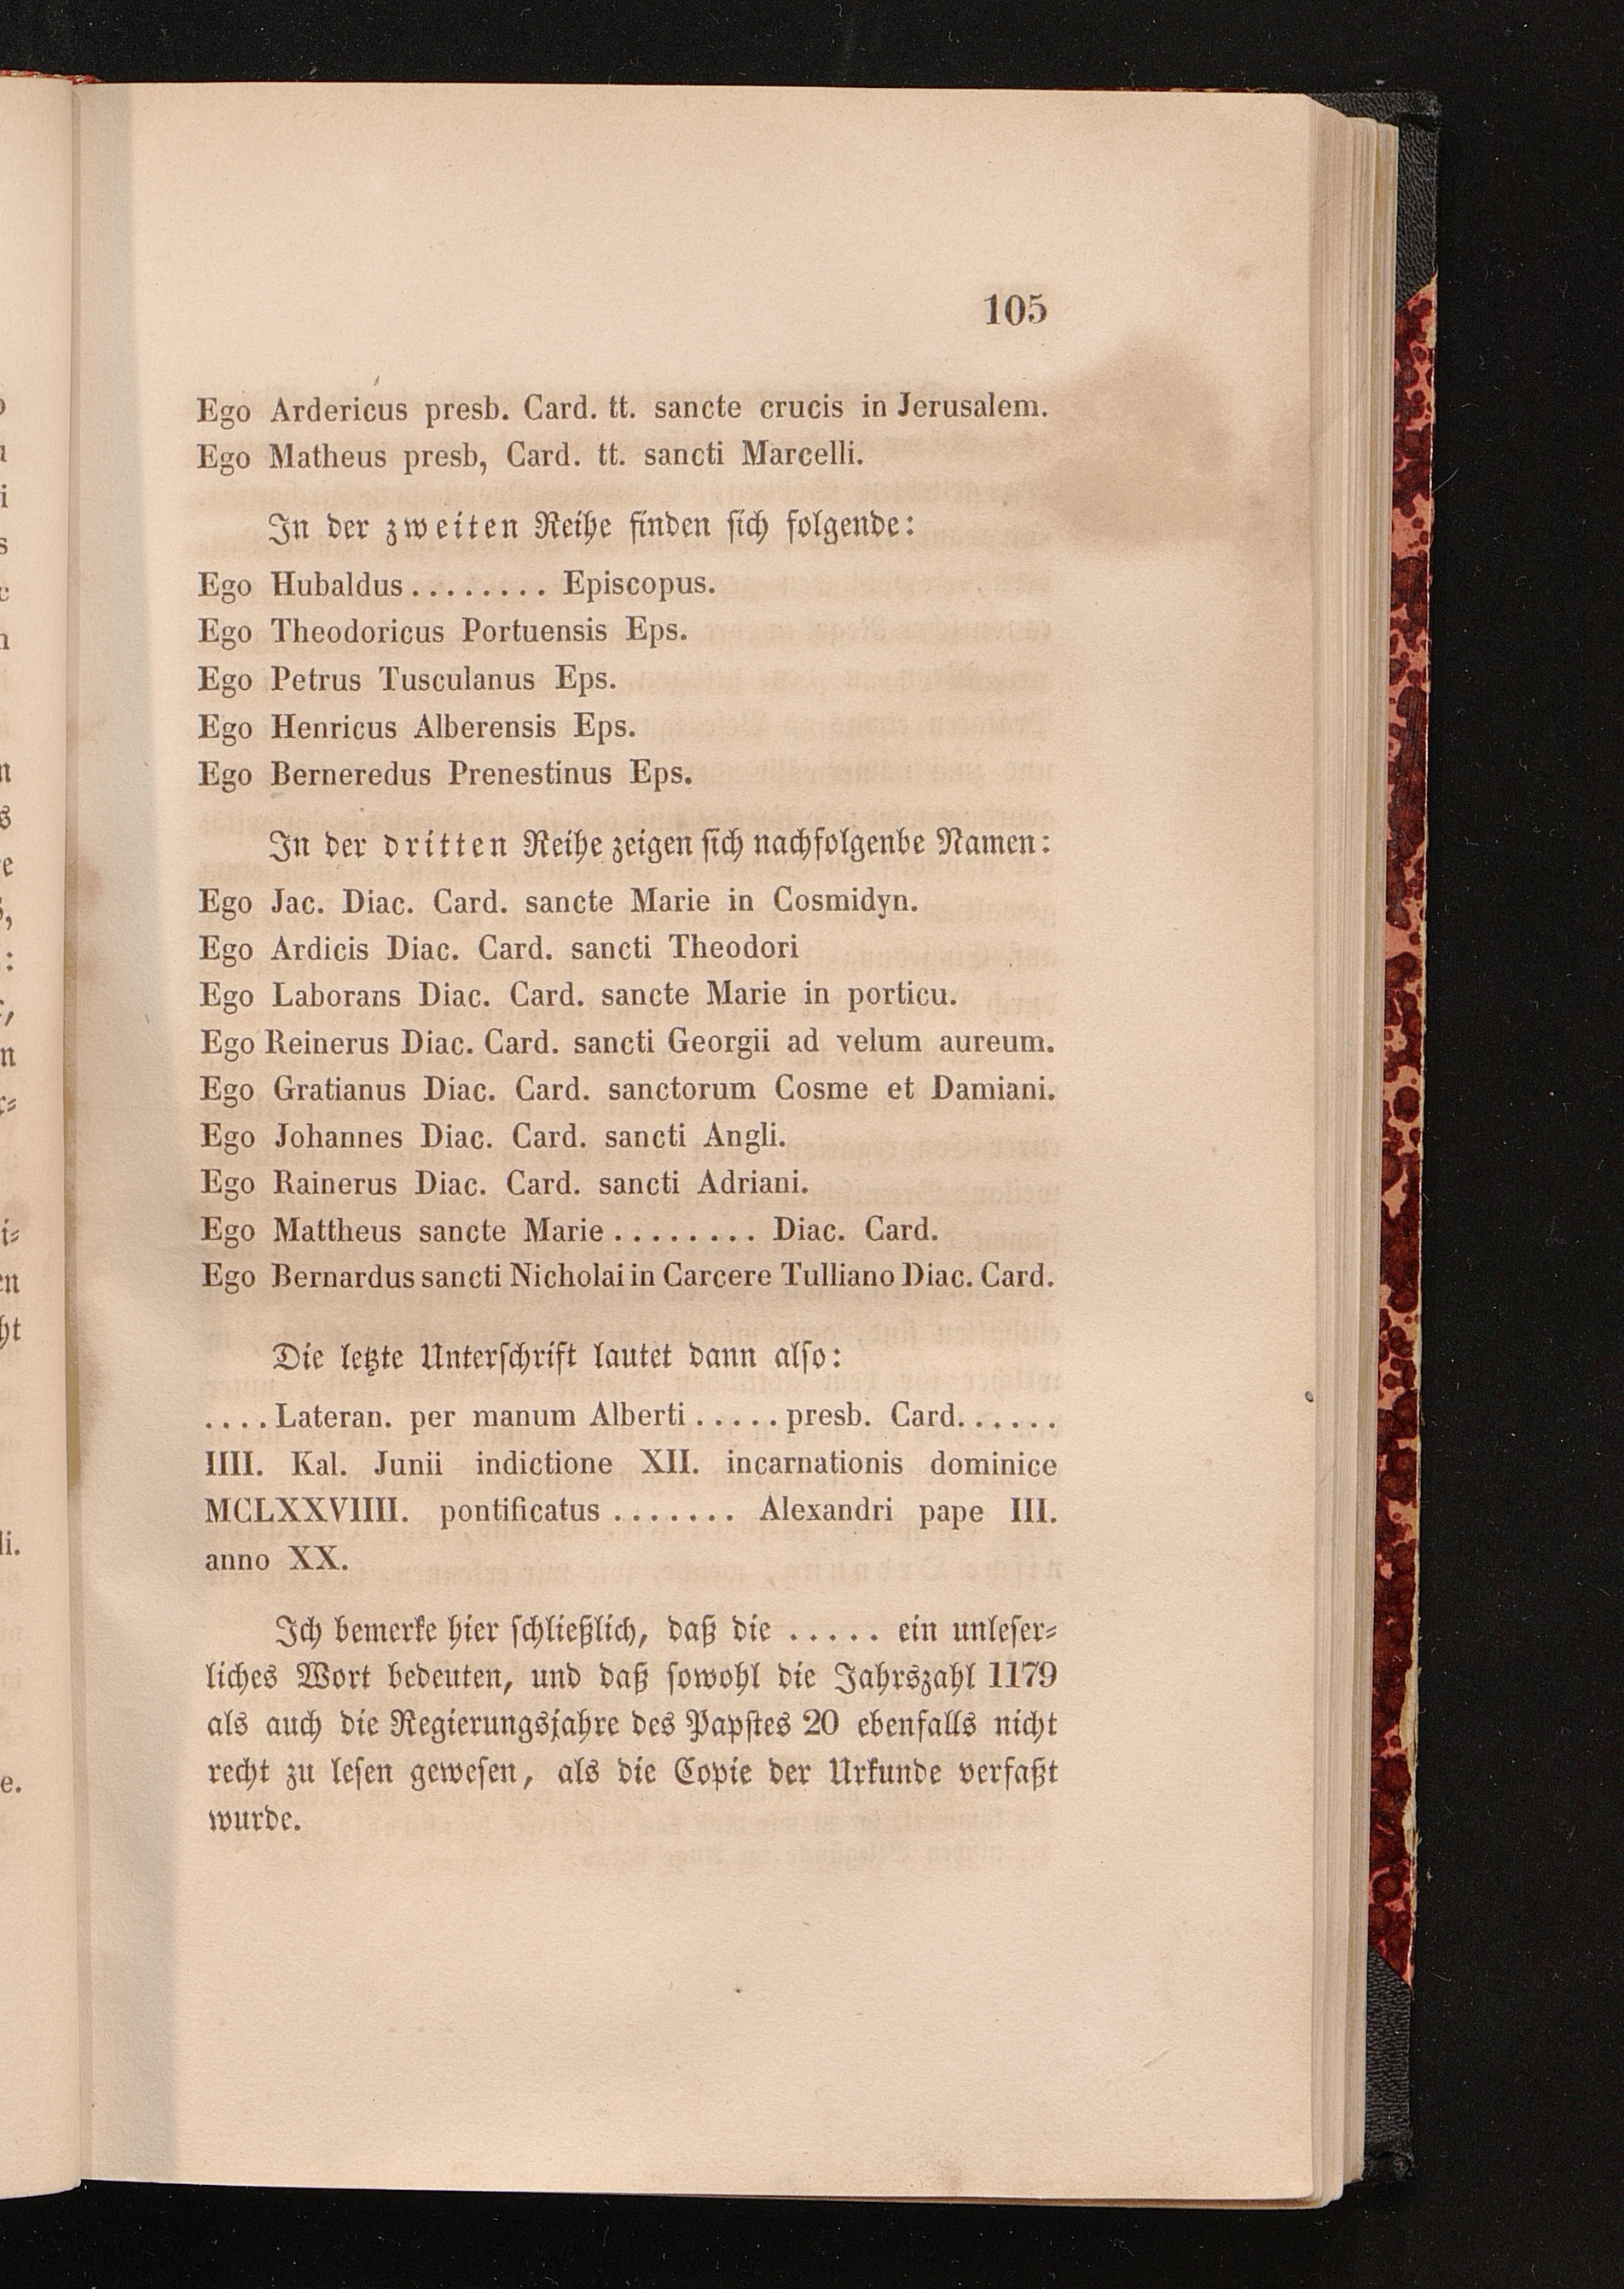 105
Ego Ardericus presb. Card. tt. sancte crucis in Jerusalem.
Ego Matheus presb, Card. tt. sancti Marcelli.
In der zweiten Reihe finden sich folgende:
Ego Hubaldus........ Episcopus.
Ego Theodoricus Portuensis Eps.
Ego Petrus Tusculanus Eps.
Ego Henricus Alberensis Eps.
Ego Berneredus Prenestinus Eps.
In der dritten Reihe zeigen sich nachfolgenbe Namen:
Ego Jac. Diac. Card. sancte Marie in Cosmidyn.
Ego Ardicis Diac. Card. sancti Theodori
Ego Laborans Diac. Card. sancte Marie in porticu.
Ego Reinerus Diac. Card. sancti Georgii ad velum aureum.
Ego Gratianus Diac. Card. sanctorum Cosme et Damiani.
Ego Johannes Diac. Card. sancti Angli.
Ego Rainerus Diac. Card. sancti Adriani.
Ego Mattheus sancte Marie........ Diac. Card.
Ego Bernardus sancti Nicholai in Carcere Tulliano Diac. Card.
Die letzte Unterschrift lautet dann also:
....Lateran. per manum Alberti.....presb. Card......
IIII. Kal. Junii indictione XII. incarnationis dominice
MCLXXVIIII. pontificatus....... Alexandri pape III.
anno XX.
Ich bemerke hier schließlich, daß die ..... ein unleser-
liches Wort bedeuten, und daß sowohl die Jahrszahl 1179
als auch die Regierungsjahre des Papstes 20 ebenfalls nicht
recht zu lesen gewesen, als die Copie der Urkunde verfaßt
wurde.